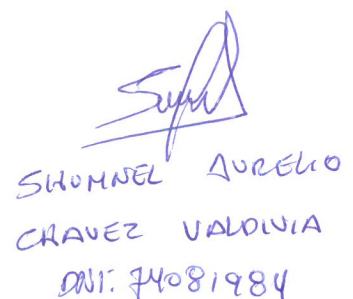 SHOMNEL AURELIO
CHAVEZ VALDIVIA
DNI: 74081984